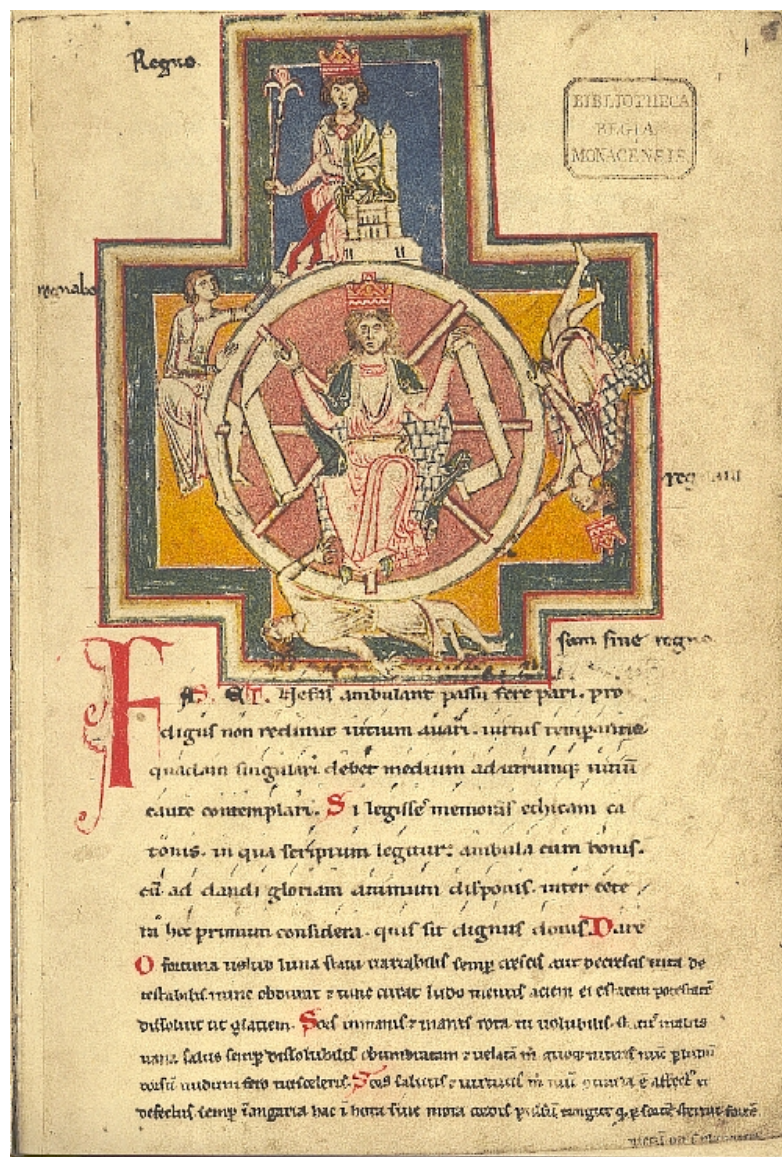 Regno.
BIBLIOTHECA
REGIA
MONACENSIS
regnabo
regnaui
sum sine regno
FAS. ET. Nefas ambulant passu fere pari. pro
digus non redimit uitium auari. uirtus temperantia
quadam singulari debet medium ad utrumq; uitiū
caute contemplari. Si legisse memoras ethicam ca
tonis. in qua scriptum legitur: ambula cum bonis.
cū ad dandi gloriam animum disponis. inter cete
ra hoc primum considera. quis sit dignus donis. Dare
O fortuna uelud luna statu uariabilis semp crescis aut decrescis uita de
testabilis nunc obdurat & tunc curat ludo mentis aciem egestatem potestatē
dissoluit ut glaciem. Sors inmanis & inanis rota tu uolubilis. status malus
uana salus semp dissolubilis obumbratam & uelatā m quoq; niteris nūc p ludū
dorsū nudum fero tui sceleris. Sors salutis & uirtutis m nūc
defectus semp ī angaria hac ī hora sine mora cordis pulsū tangite q p sortē sternit fortē
mecū omnes plangite